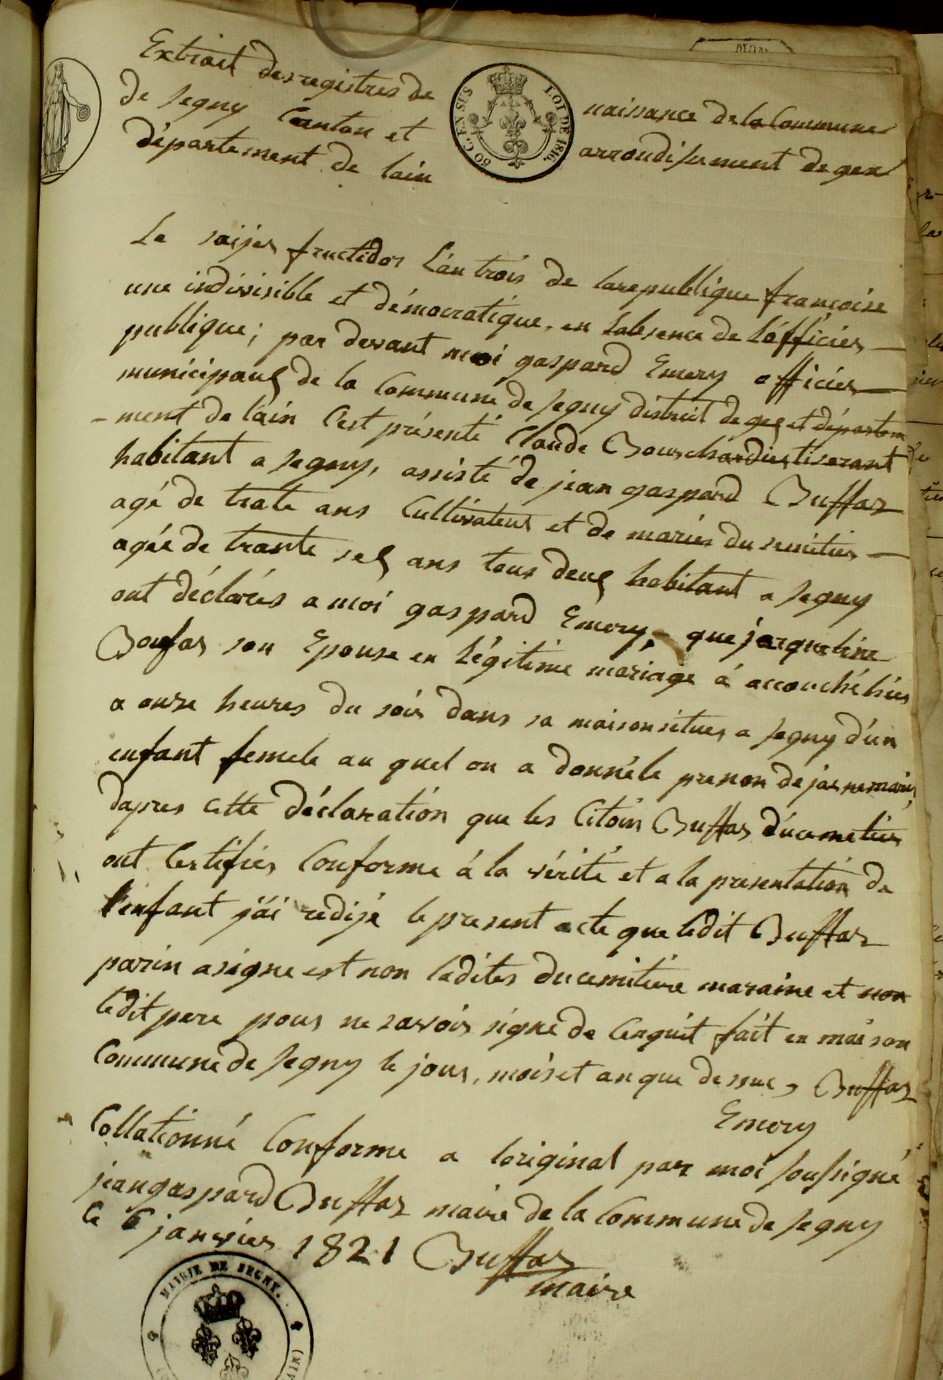 Extrait des registres de naissance de la Commune
de Segny Canton et arrondisement de gex
département de lain
50 C. EN SUS
LOI DE 1816.
Le saijes fructidor L'an trois de la republique françoise
une indivisible et démocratique, en Labsence de Lófficier
publique; par devant moi gaspard Emery officier
municipaux de la Commune de Segny district de gex et départem
-ment de lain C'est présenté Claude Bouchardies tiserant
habitant a segny, assisté de jean gaspard Buffaz
agé de trate ans Cultivateur et de maries du simitier
agée de trante sex ans tous deux habitant a Segny
ont déclarés a moi gaspard Emery, que jacqueline
Boufas son Epouse en légitime mariage á accouché hier
a onze heures du soir dans sa maison situés a Segny d'un
enfant femele au quel on a donnéle prenon de
dapres cette déclaration que les Citoin Buffaz ducemetier
ont Certifiés Conforme á la vérité et a la presentation de
l'enfant j'ai redijé le present acte que ledit Buffaz
parin a signe est non ladites ducemitiere maraine et non
ledit pere pour ne savoir signé de Cenquit fait en maison
Commune de Segny le jour, mois et an que dessue, Buffaz
Emery
Collationné Conforme a loriginal par moi soussigné
jean gaspard Buffaz maire de la Commune de Segny
Ce 6 janvier 1821 Buffaz
maire
MAIRIE DE SEGNY.